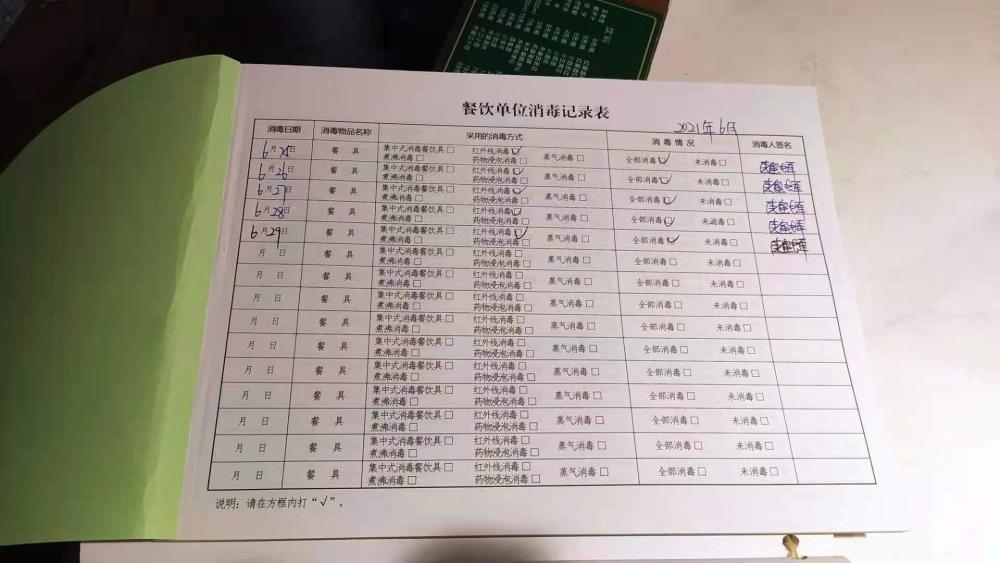 餐饮单位消毒记录表
2021年6月
消毒日期 消毒物品名称 采用的消毒方式 消毒情况 消毒人签名
6月25日 餐具 集中式消毒餐饮具□ 红外线消毒☑ 蒸气消毒□ 全部消毒☑ 未消毒□
煮沸消毒□ 药物浸泡消毒□
6月26日 餐具 集中式消毒餐饮具□ 红外线消毒☑ 蒸气消毒□ 全部消毒☑ 未消毒□
煮沸消毒□ 药物浸泡消毒□
6月27日 餐具 集中式消毒餐饮具□ 红外线消毒☑ 蒸气消毒□ 全部消毒☑ 未消毒□
煮沸消毒□ 药物浸泡消毒□
6月28日 餐具 集中式消毒餐饮具□ 红外线消毒☑ 蒸气消毒□ 全部消毒☑ 未消毒□
煮沸消毒□ 药物浸泡消毒□
6月29日 餐具 集中式消毒餐饮具□ 红外线消毒☑ 蒸气消毒□ 全部消毒☑ 未消毒□
煮沸消毒□ 药物浸泡消毒□
月 日 餐具 集中式消毒餐饮具□ 红外线消毒□ 蒸气消毒□ 全部消毒□ 未消毒□
煮沸消毒□ 药物浸泡消毒□
月 日 餐具 集中式消毒餐饮具□ 红外线消毒□ 蒸气消毒□ 全部消毒□ 未消毒□
煮沸消毒□ 药物浸泡消毒□
月 日 餐具 集中式消毒餐饮具□ 红外线消毒□ 蒸气消毒□ 全部消毒□ 未消毒□
煮沸消毒□ 药物浸泡消毒□
月 日 餐具 集中式消毒餐饮具□ 红外线消毒□ 蒸气消毒□ 全部消毒□ 未消毒□
煮沸消毒□ 药物浸泡消毒□
月 日 餐具 集中式消毒餐饮具□ 红外线消毒□ 蒸气消毒□ 全部消毒□ 未消毒□
煮沸消毒□ 药物浸泡消毒□
月 日 餐具 集中式消毒餐饮具□ 红外线消毒□ 蒸气消毒□ 全部消毒□ 未消毒□
煮沸消毒□ 药物浸泡消毒□
月 日 餐具 集中式消毒餐饮具□ 红外线消毒□ 蒸气消毒□ 全部消毒□ 未消毒□
煮沸消毒□ 药物浸泡消毒□
月 日 餐具 集中式消毒餐饮具□ 红外线消毒□ 蒸气消毒□ 全部消毒□ 未消毒□
煮沸消毒□ 药物浸泡消毒□
月 日 餐具 集中式消毒餐饮具□ 红外线消毒□ 蒸气消毒□ 全部消毒□ 未消毒□
煮沸消毒□ 药物浸泡消毒□
月 日 餐具 集中式消毒餐饮具□ 红外线消毒□ 蒸气消毒□ 全部消毒□ 未消毒□
煮沸消毒□ 药物浸泡消毒□
说明：请在方框内打“√”。